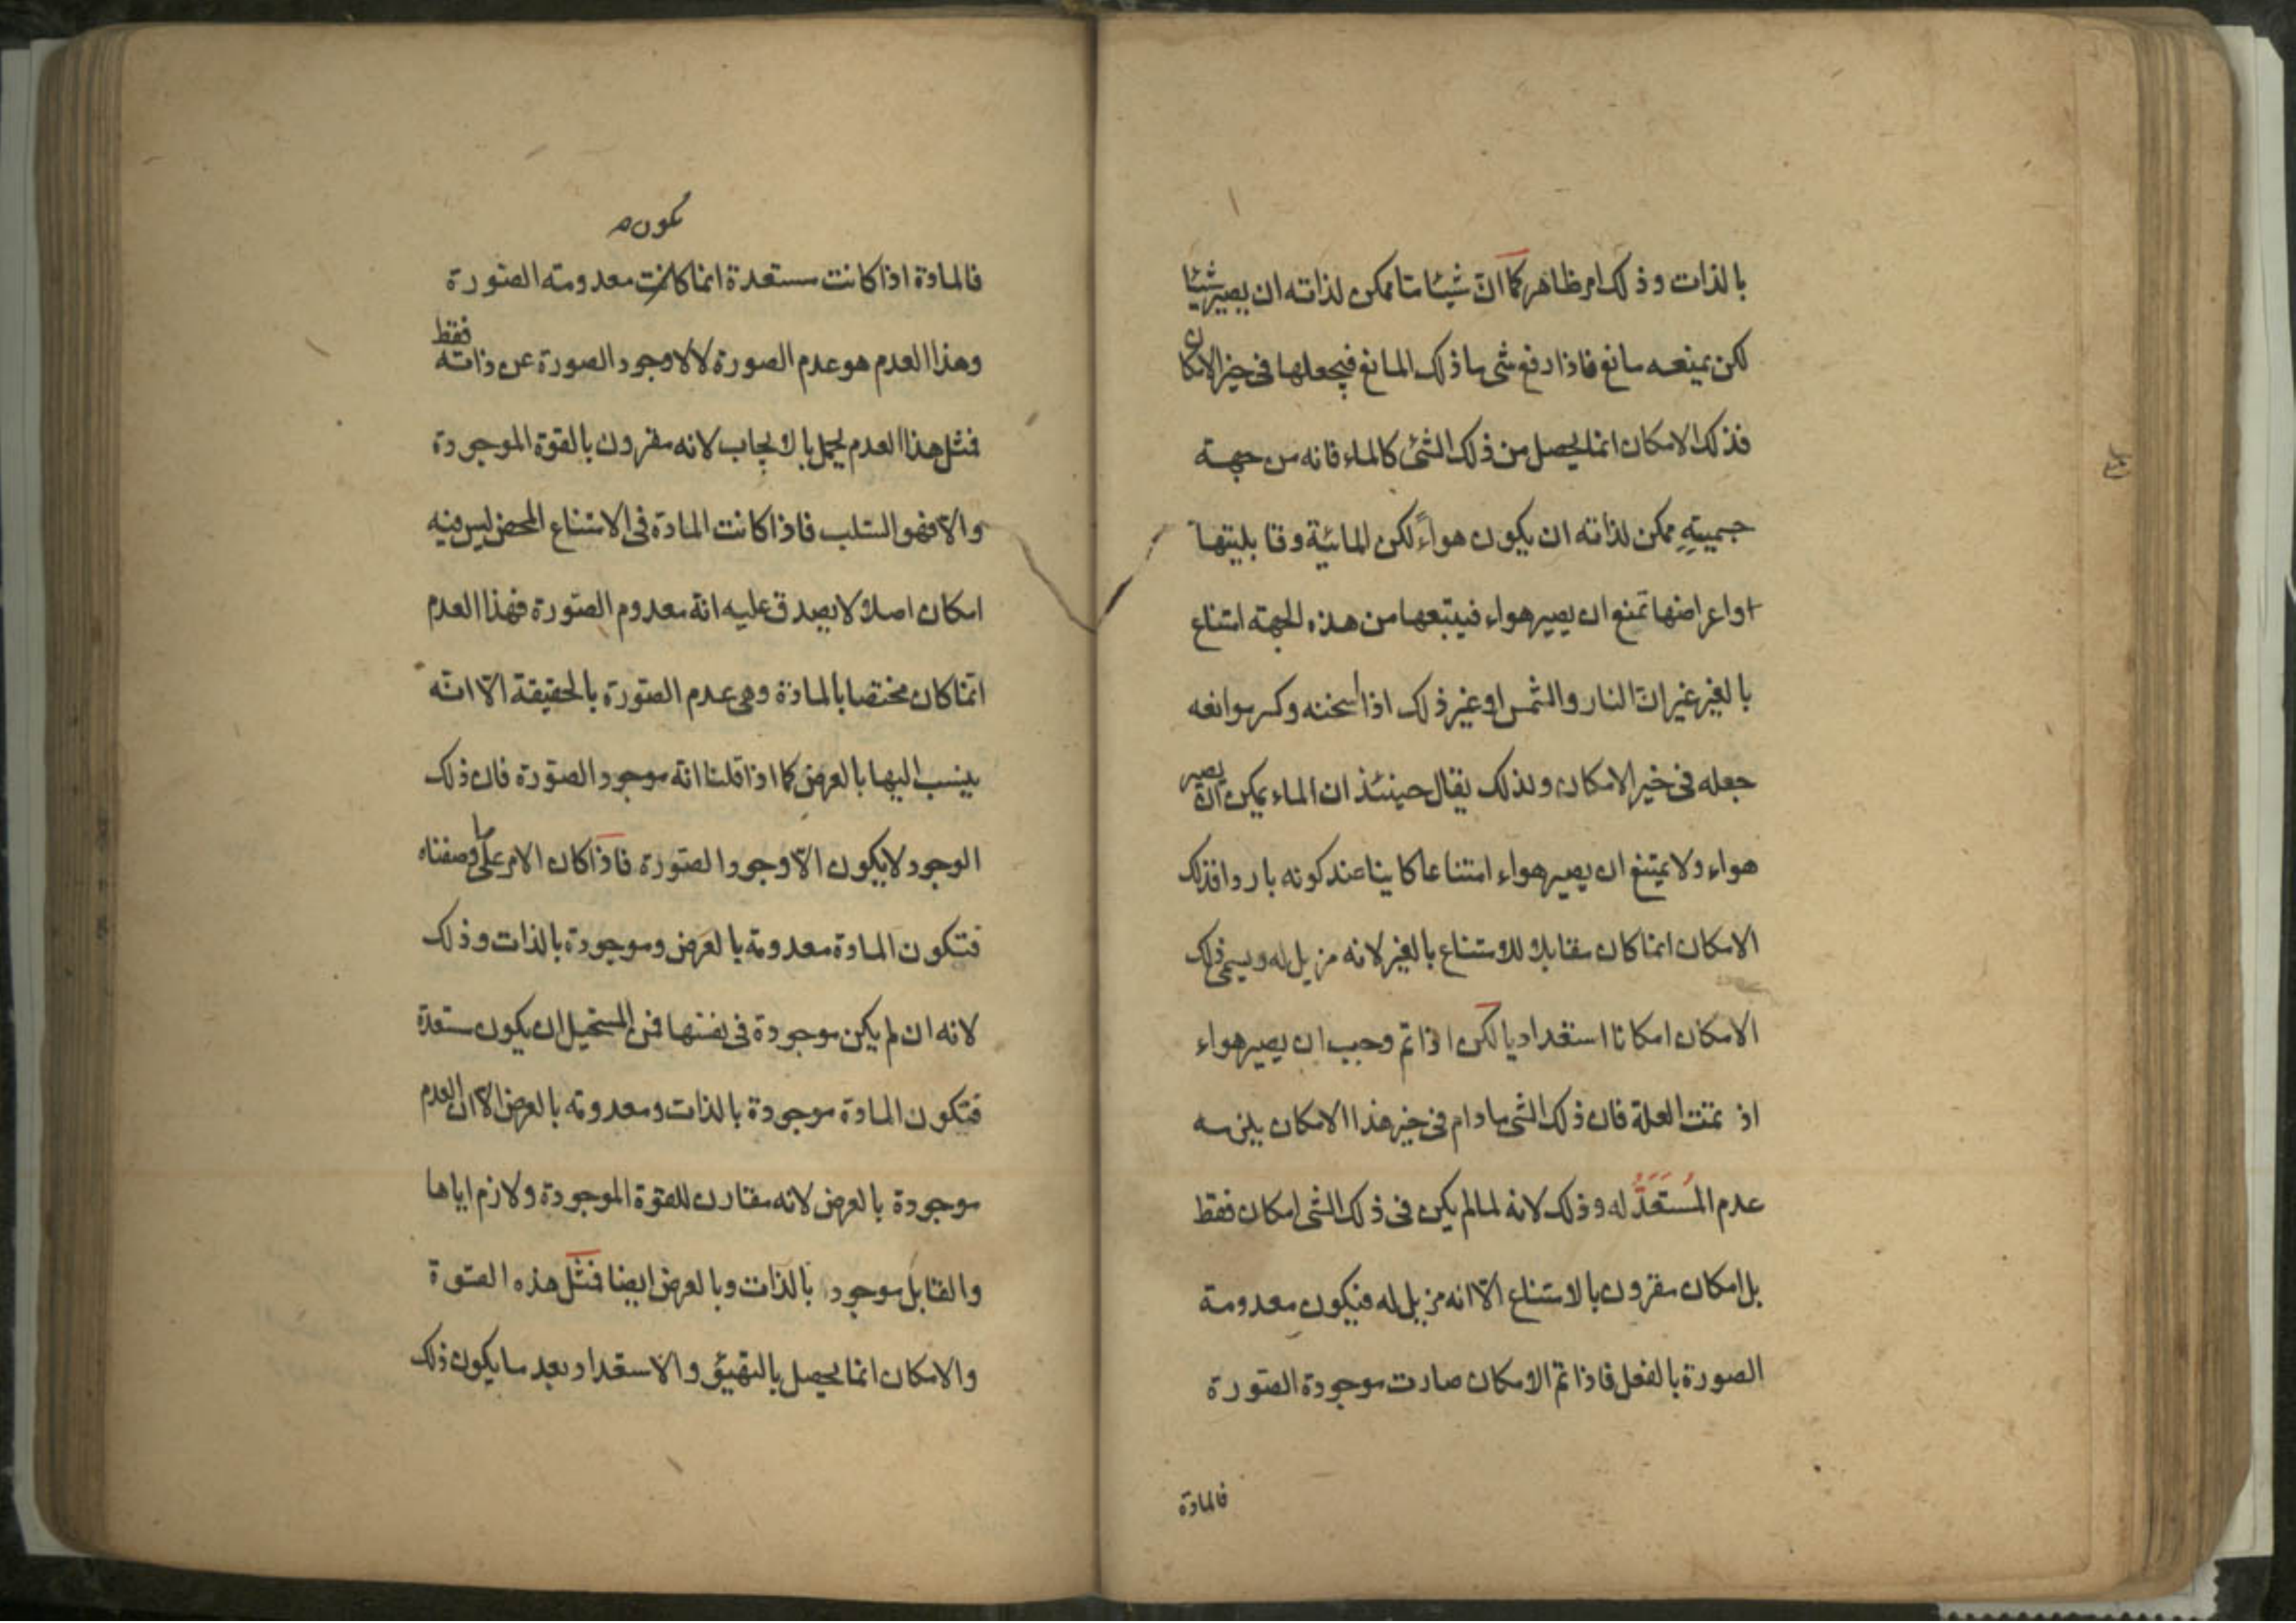 بالذات وذلك امر ظاهر كما انّ شيئا ما تا ممكن لذاته ان يصير شيئا
لكن يمنعه مانع فاذا رفع شى ما ذلك المانع فيجعلها فى حيز الامكان
فذلك الامكان انما يحصل من ذلك الشئ كالماء فانه من جهة
جسميتهِ ممكن لذاته ان يكون هواءً لكن المائيّة وقابليتها
او اعراضها تمنع ان يصير هواء فيتبعها من هذه الجهته امتناع
بالغير غير انّ النار والشمس او غير ذلك اذا اسخنه وكسر موانعه
جعله فى خير الامكان ولذلك يقال حينئذ ان الماء يمكن ان يصير
هواء ولا يمتنع ان يصير هواء امتناعا كاينا عند كونه باردا فذلك
الامكان انما كان مقابلا للامتناع بالغير لانه مزيل له ويسمى ذلك
الامكان امكانا استعداديا لكن اذا تم وجب ان يصير هواء
اذ تمّت العلة فان ذلك الشى مادام فى حيز هذا الامكان يلزمه
عدم المُستَعَدَّ له وذلك لانه لما لم يكن فى ذلك الشى امكان فقط
بل امكان مقرون بالامتناع الّا انه مزيل له فيكون معدومة
الصورة بالفعل فاذا تمّ الامكان صارت موجودة الصّورة
فالمادّة
تكون م
فالمادّة اذا كانت مستعدة انما كانت معدومته الصّورة
وهذا العدم هو عدم الصورة لا لاوجود الصورة عن ذاته فقط
فمثل هذا العدم يحمل بالايجاب لانه مقرون بالقوة الموجودة
والّا فهو السّلب فاذا كانت المادّة فى الامتناع المحض ليس فيه
امكان اصلا لا يصدق عليه انّه معدوم الصّورة فهذا العدم
انّما كان مختصا بالمادّة وهى عدم الصّورة بالحقيقة الّا انّه
ينسب اليها بالعرض كما اذا قلنا انّه موجود الصّورة فان ذلك
الوجود لا يكون الّا وجود الصّورة فاذا كان الامر على ما وصفناه
فتكون المادة معدومة بالعرض وموجودة بالذات وذلك
لانه ان لم يكن موجودة فى نفسها فمن المستحيل ان يكون مستعدّة
فتكون المادّة موجودة بالذات ومعدومة بالعرض الّا ان العدم
موجودة بالعرض لانه مقارن للقوّة الموجودة ولازم اياها
والقابل موجود بالذات وبالعرض ايضا فمثل هذه الصّورة
والامكان انما يحصل بالتهيّؤ والاستعداد بعد ما يكون ذلك